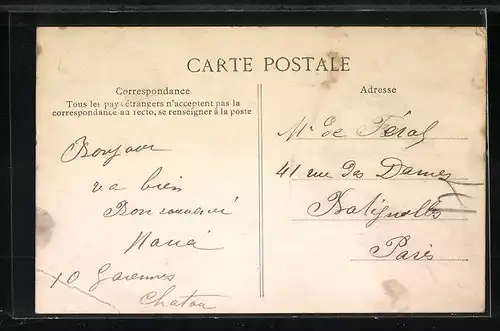 CARTE POSTALE
Correspondance
Tous les pays étrangers n'acceptent pas la
correspondance au recto, se renseigner à la poste
Bonjour
va bien
Bon souvenir
Maria
10 Garennes
Chatou
Adresse
Mr de Féral
41 rue des Dames
Batignolles
Paris